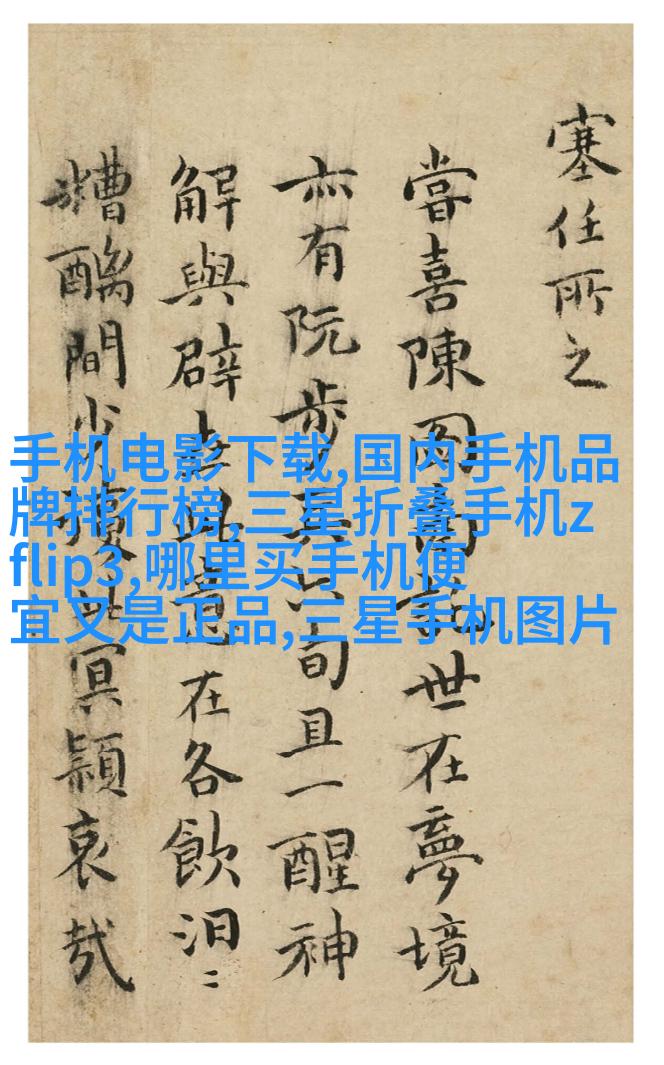 塞任所之
嘗喜陳世在夢境
亦有阮步兵旬且一醒神
解與辟在各飲汩〻
糟醨間少冥穎哀哉
手机电影下载,国内手机品
牌排行榜,三星折叠手机z
flip3,哪里买手机便
宜又是正品,三星手机图片